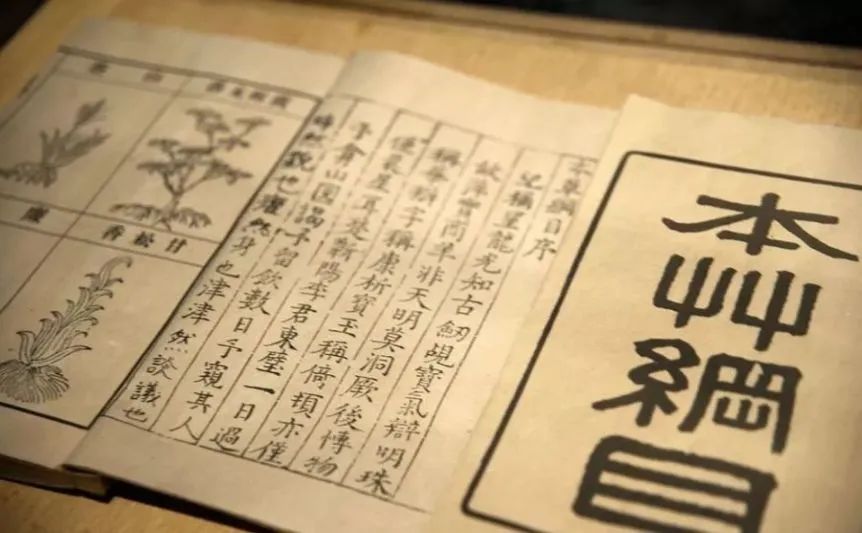 本艸綱目
本草綱目序
稱望龍光知古劒覘寶氣辯明珠
故萍實商羊非天明莫洞厥後博物
稱華辯字稱康析寶玉稱倚頓亦僅
晨星耳楚蘄陽李君東璧一日過
予弇山園謁予留飲數日予窺其人
然貌也癯然身也津津然談議也
甘松香